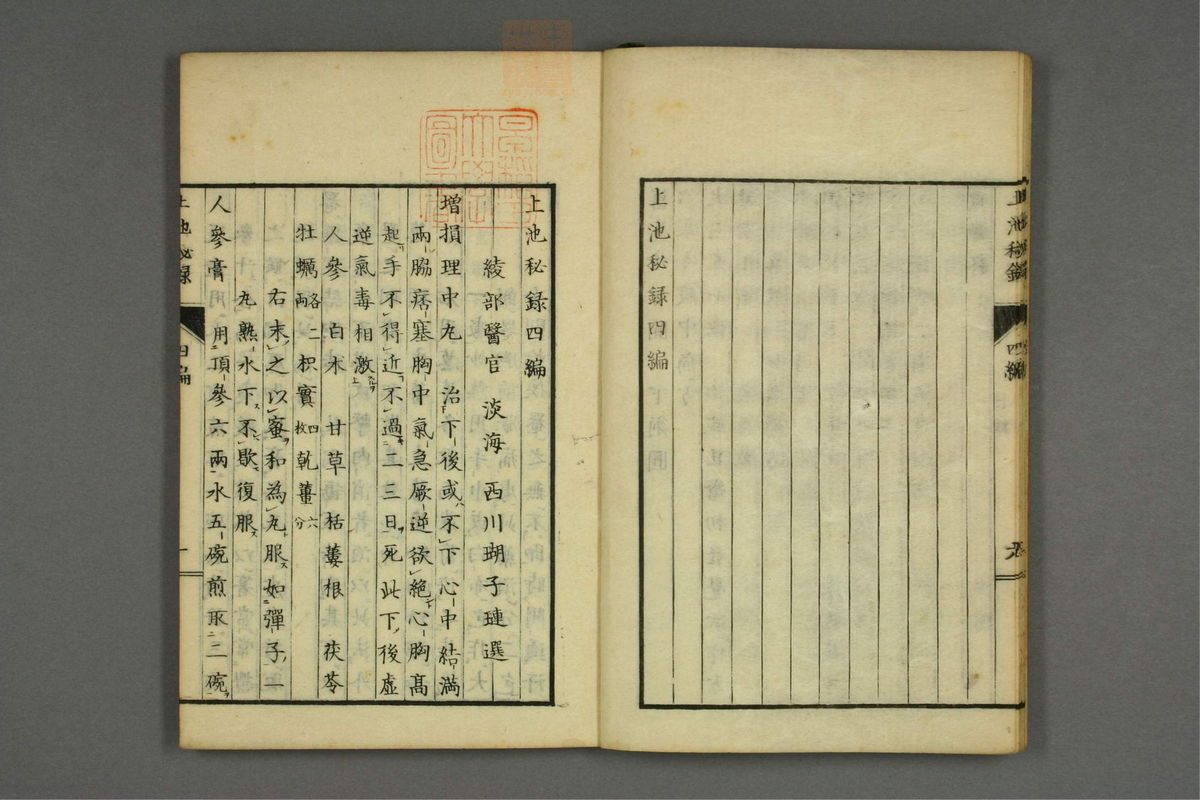 上池秘録
四編
上池秘録四編
上池秘録四編
綾部醫官 淡海 西川瑚子璉選
増損理中丸 治下後或不下心中結満
兩脇痞塞胸中氣急厥逆欲絶心胸髙
起手不得近不過二三日死此下後虚
逆氣毒相激
人參 白朮 甘草 栝蔞根 茯苓
牡蠣 枳實四枚 乾薑六分
右末之以蜜和為丸服如彈子一
丸熟水下不歇復服
人參膏 用頂參六兩水五碗煎取三碗
上池秘録
四編
一